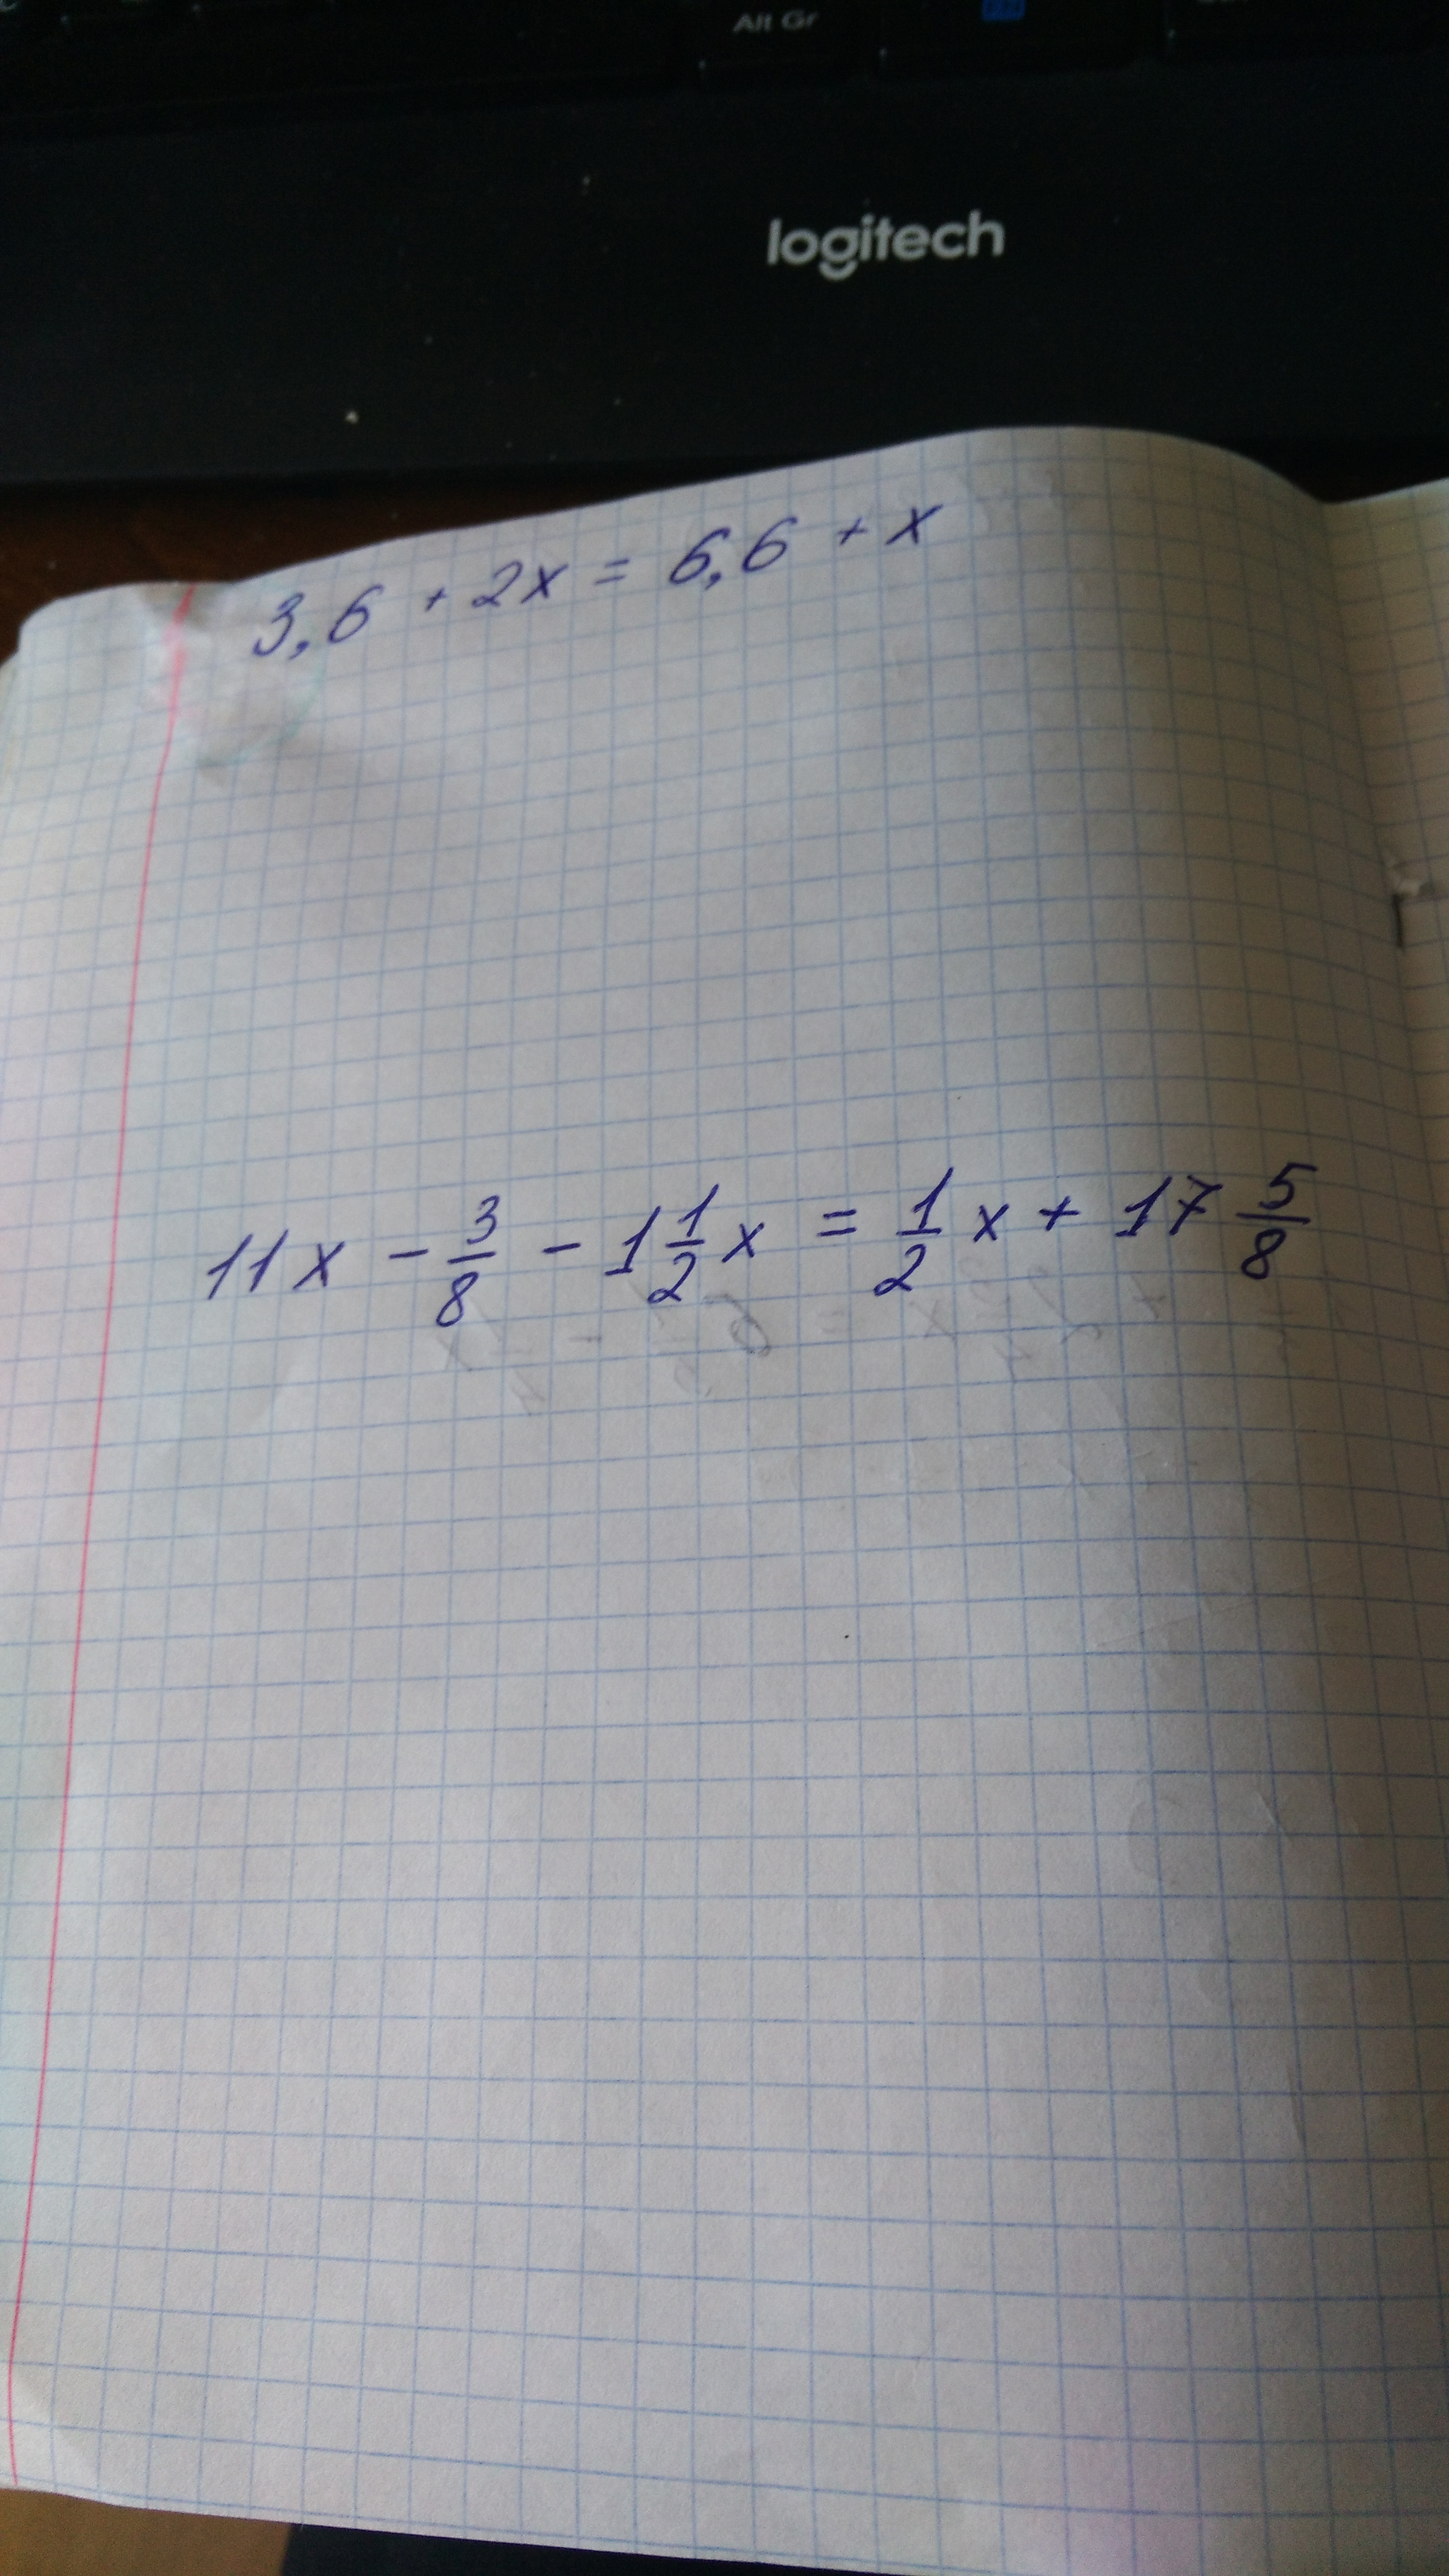 Alt Gr
logitech
3,6 + 2x = 6,6 + x
11x - 3/8 - 1 1/2 x = 1/2 x + 17 5/8